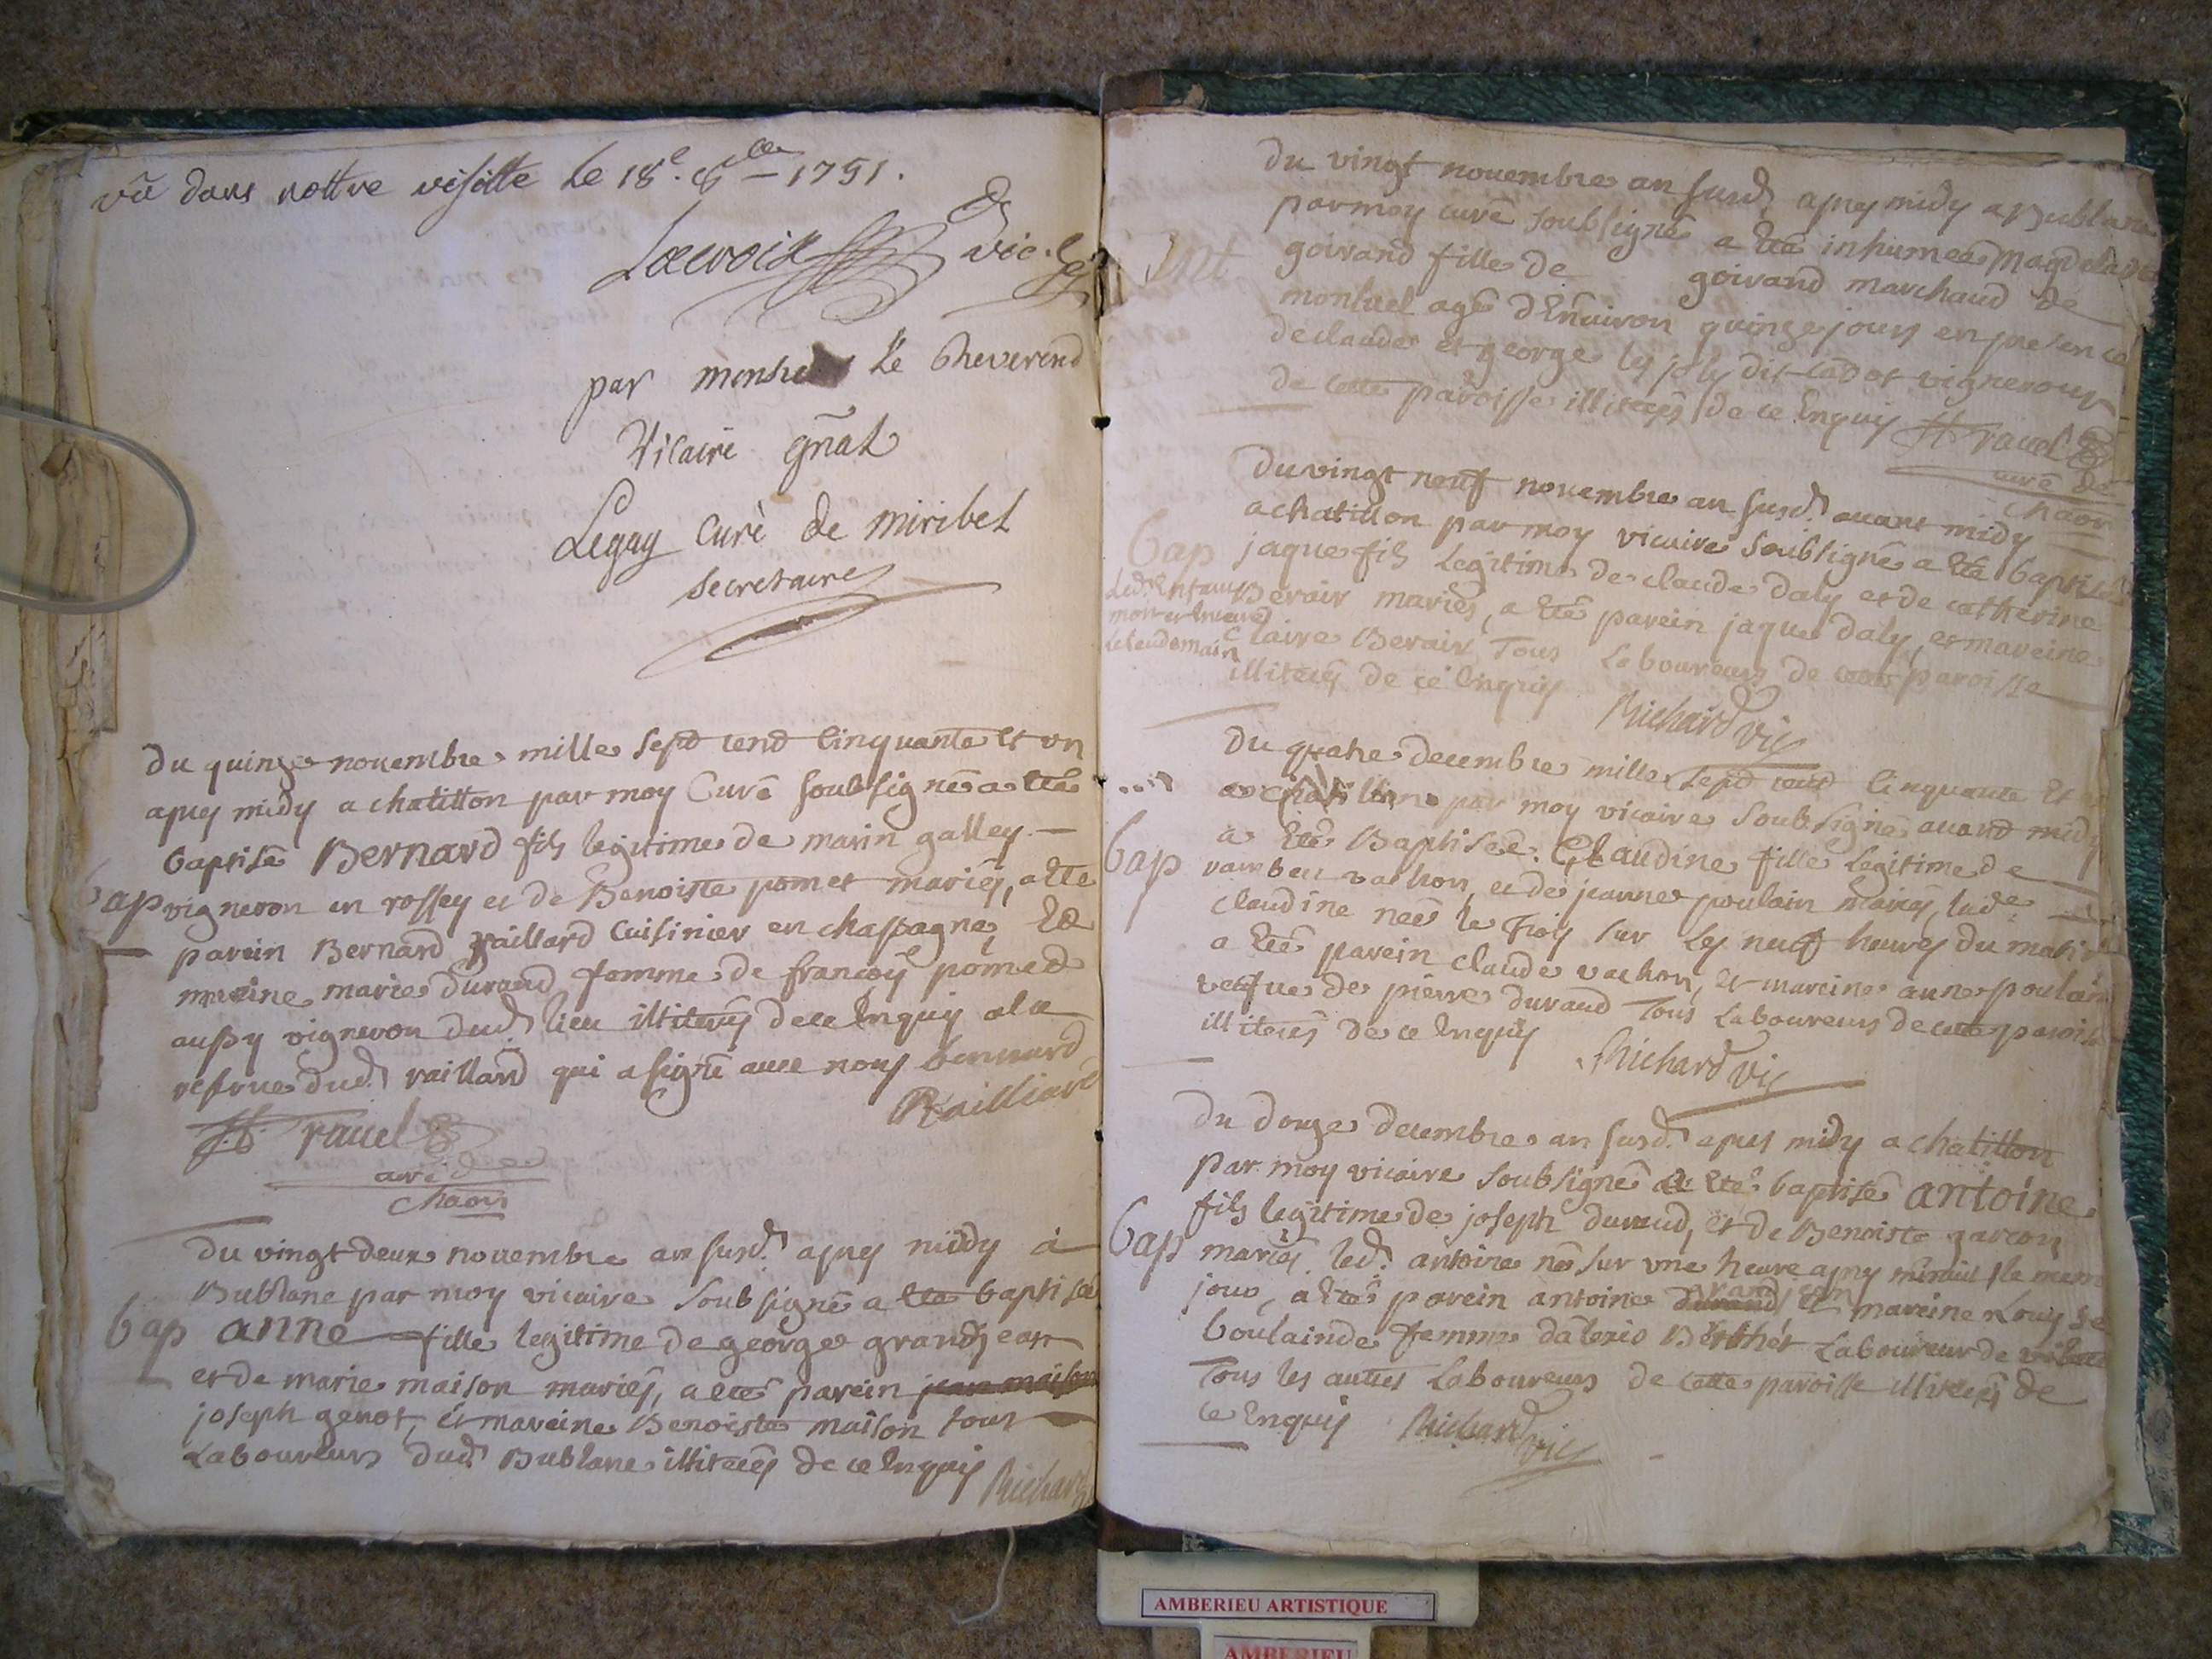 vû dans nottre visitte le 18e. 8bre 1751.
Lacroix vic. g
par monsieur le Reverend
Vicaire gñal
Legay Curè de miribel
secretaire
Du quinze novembre mille sept cend Cinquante et un
apres midy a chatillon par moy Curé soubsigné a été
baptisé Bernard fils legitime de marin galley
Bap
vigneron en rossey et de Benoiste pomet mariés, a été
parein Bernard raillard Cuisinier en chassagne, et
mareine marie durand femme de françois pomed
aussy vigneron dud. lieu illiterés de ce Enquis a la
reserve dud. raillard qui a signé avec nous bernard
Railliard
ravel
curé de
chaon
Du vingt deux novembre an susd. apres midy à
Bublane par moy vicaire soubsigné a été baptisée
Bap
anne fille legitime de george grandjean
et de marie maison mariés, a été parein jean maison
joseph genot, et mareine Benoiste maison tous
Laboureurs dud. Bublane illiterés de ce Enquis Richard
Du vingt novembre an susd. apres midy a Bublane
par moy curé soubsigné a été inhumée magdelaine
Int
goirand fille de goirand marchand de
monluel agé d'Environ quinze jours en presence
de claude et george les joly dit cadot vignerons
de cette paroisse illiterés de ce Enquis ravel
curé de
chaon
Du vingt neuf novembre an susd. avant midy
a chatillon par moy vicaire soubsigné a été baptisé
Bap
jaque fils legitime de claude daly et de catherine
Led. Enfant
mort et Enterré
Lelendemain
Berair mariés, a été parein jaque daly, et mareine
claire Berair Tous Laboureurs de cette paroisse
illiterés de ce Enquis
Richard vic
Du quatre decembre mille sept cend Cinquante et
a chatillon par moy vicaire soubsigné avand midy
Bap
a été Baptisée Claudine fille legitime de
rambeu vachon, et de jeanne poulain mariés, lade
claudine neé le trois sur les neuf heures du matin
a été parein claude vachon, et mareine anne poulain
vefue de pierre durand Tous Laboureurs de cette paroisse
illiterés de ce Enquis
Richard vic
Du douze decembre an susd. apres midy a chatillon
par moy vicaire soubsigné a été baptisé antoine
Bap
fils legitime de joseph durand, et de Benoiste garcon
mariés led. antoine né sur une heure apres minuit le meme
jour, a été parein antoine durand et mareine Louise
grandjean
boulainde femme d'alexis Berthet Laboureur de
Tous les autres Laboureurs de cette paroisse illiterés de
ce Enquis Richard vic
AMBERIEU ARTISTIQUE
AMBERIEU